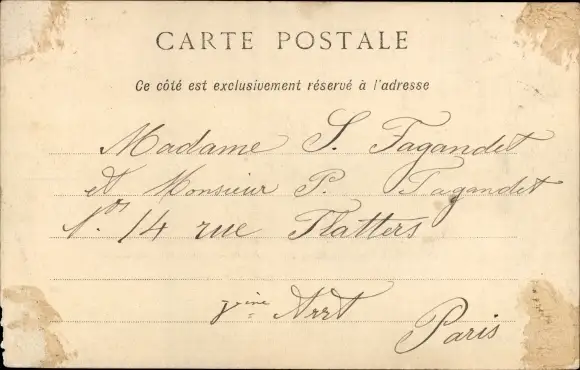 CARTE POSTALE
Ce côté est exclusivement réservé à l'adresse
Madame S. Fagandet
et Monsieur P. Fagandet
Nos. 14 rue Flatters
Arrt
Paris